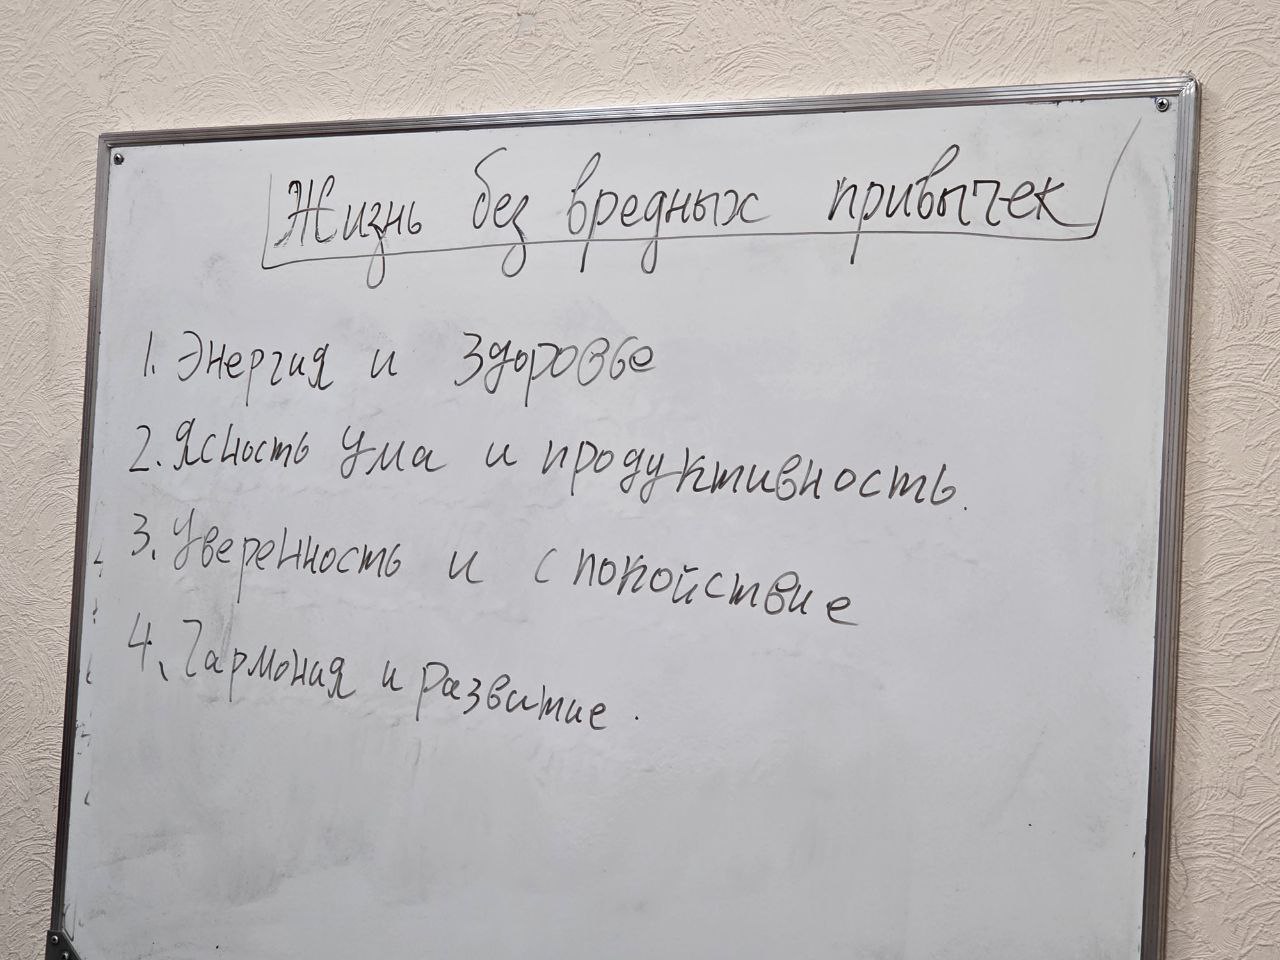 Жизнь без вредных привычек
1. Энергия и здоровье
2. Ясность ума и продуктивность.
3. Уверенность и спокойствие
4. Гармония и развитие.